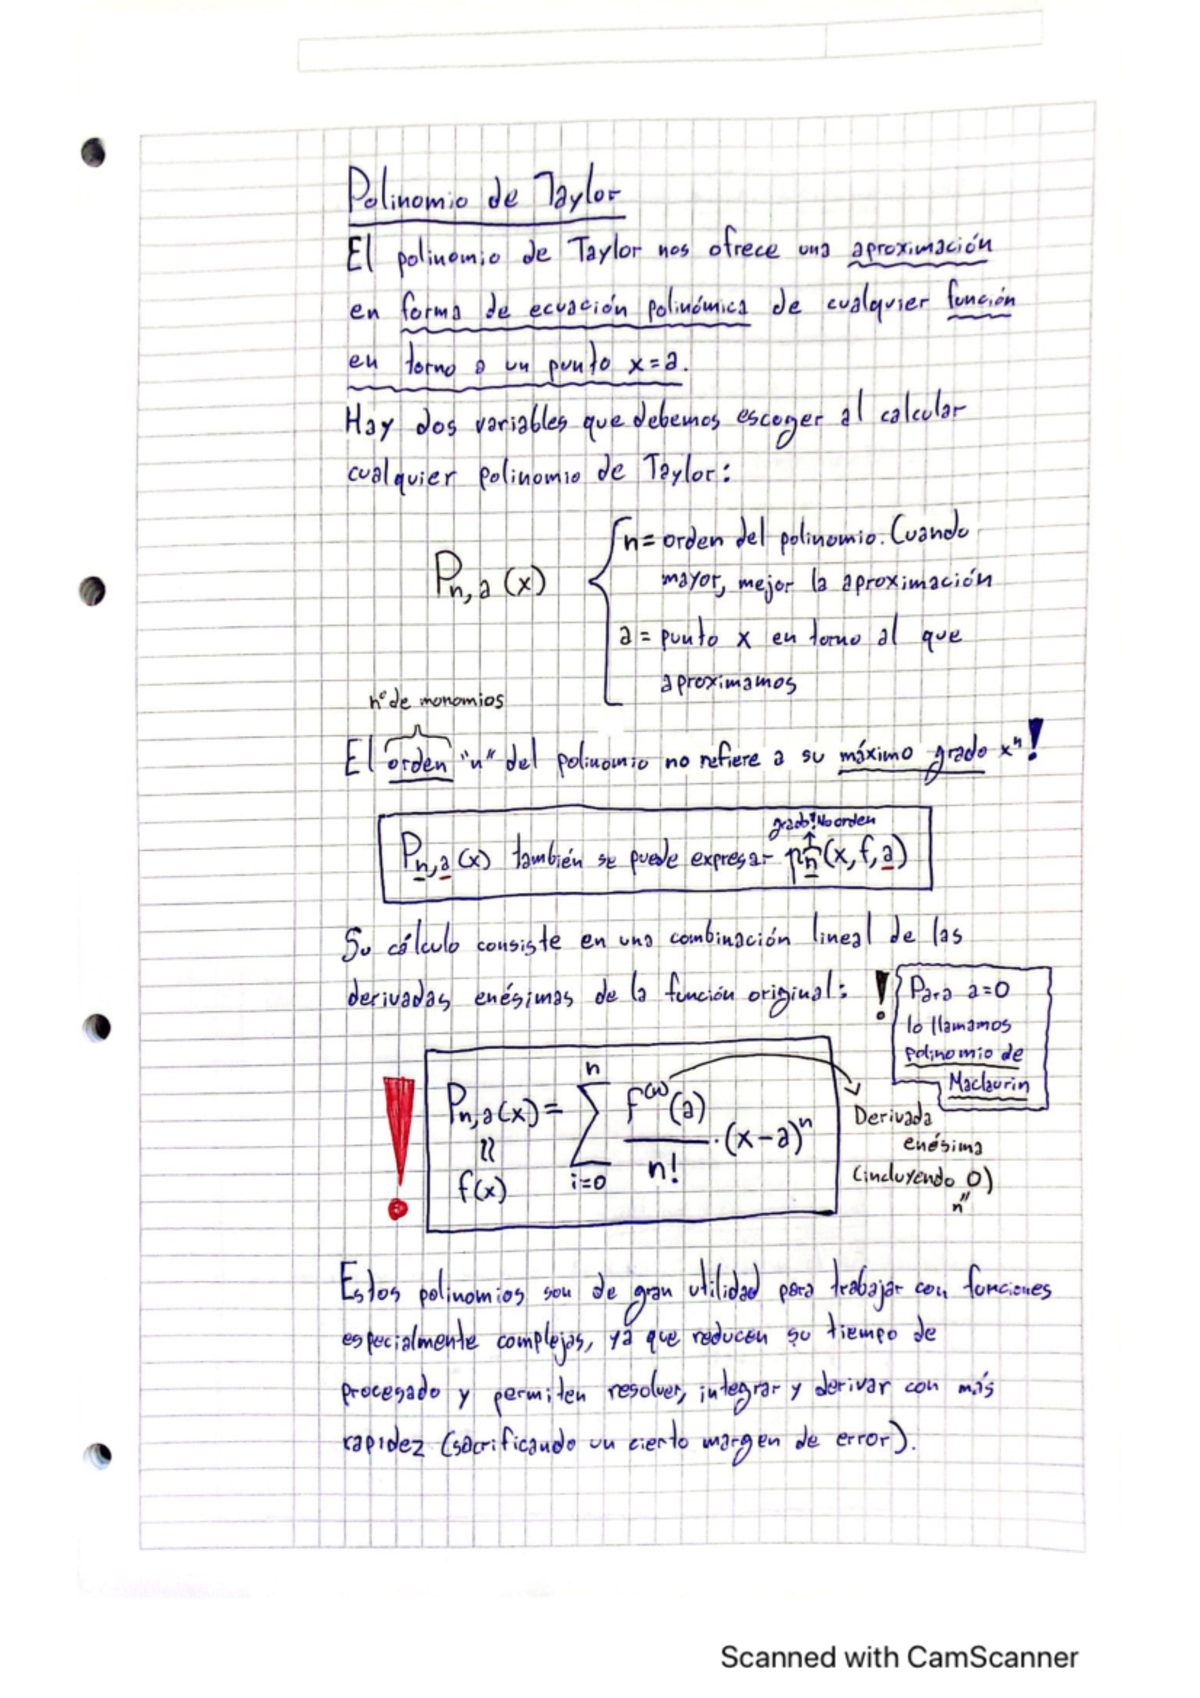 Polinomio de Taylor
El polinomio de Taylor nos ofrece una aproximación
en forma de ecuación polinómica de cualquier función
en torno a un punto x=a.
Hay dos variables que debemos escoger al calcular
cualquier polinomio de Taylor:
n= orden del polinomio. Cuando
Pn,a (x)
mayor, mejor la aproximación
a = punto x en torno al que
aproximamos
nº de monomios
El orden "n" del polinomio no refiere a su máximo grado xⁿ!
grado! No orden
Pn,a (x) también se puede expresar pn(x,f,a)
Su cálculo consiste en una combinación lineal de las
derivadas enésimas de la función original: !
Para a=0
lo llamamos
polinomio de
Maclaurin
! Pn,a(x) = n ∑ i=0 f⁽ⁿ⁾(a) / n! · (x-a)ⁿ
≈
f(x)
Derivada
enésima
(incluyendo 0)
"
n
Estos polinomios son de gran utilidad para trabajar con funciones
especialmente complejas, ya que reducen su tiempo de
procesado y permiten resolver, integrar y derivar con más
rapidez (sacrificando un cierto margen de error).
Scanned with CamScanner